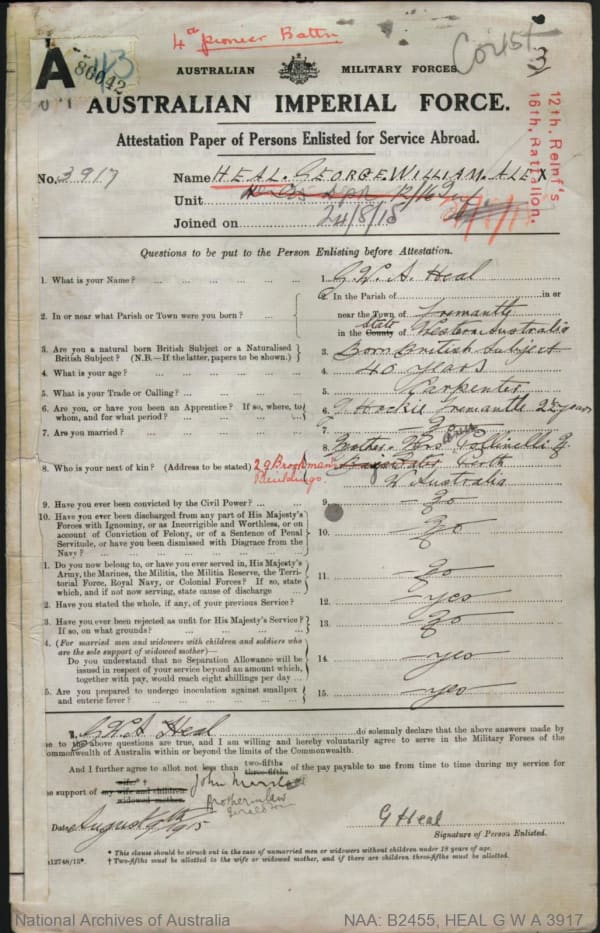 4th Pioneer Battn
A
86042
AUSTRALIAN MILITARY FORCES
12th, Reinf's
16th, Battalion.
AUSTRALIAN IMPERIAL FORCE.
Attestation Paper of Persons Enlisted for Service Abroad.
No. 3917 Name HEAL. GEORGE WILLIAM. ALEX
Unit 12/16
Joined on 24/8/15
Questions to be put to the Person Enlisting before Attestation.
1. What is your Name? ... 1. G. W. A. Heal
2. In or near what Parish or Town were you born? ... 2. In the Parish of in or
near the Town of Fremantle
in the County State of Western Australia
3. Are you a natural born British Subject or a Naturalised
British Subject? (N.B.—If the latter, papers to be shown.) 3. Born British Subject
4. What is your age? ... 4. 40 years
5. What is your Trade or Calling? ... 5. Carpenter
6. Are you, or have you been an Apprentice? If so, where, to
whom, and for what period? ... 6. Fremantle 2½ years
7. Are you married? ... 7. No
8. Who is your next of kin? (Address to be stated) 8. Mother. Mrs
29 Brockman Buildings Perth
W Australia
9. Have you ever been convicted by the Civil Power? ... 9. No
10. Have you ever been discharged from any part of His Majesty's
Forces with Ignominy, or as Incorrigible and Worthless, or on
account of Conviction of Felony, or of a Sentence of Penal
Servitude, or have you been Dismissed with Disgrace from the
Navy? ... 10. No
1. Do you now belong to, or have you ever served in, His Majesty's
Army, the Marines, the Militia, the Militia Reserve, the Terri-
torial Force, Royal Navy, or Colonial Forces? If so, state
which, and if not now serving, state cause of discharge 11. No
2. Have you stated the whole, if any, of your previous Service? 12. yes
3. Have you ever been rejected as unfit for His Majesty's Service?
If so, on what grounds? ... 13. No
4. (For married men and widowers with children and soldiers who
are the sole support of widowed mother)—
Do you understand that no Separation Allowance will be
issued in respect of your service beyond an amount which,
together with pay, would reach eight shillings per day ... 14. yes
5. Are you prepared to undergo inoculation against smallpox
and enteric fever? ... 15. yes
I, G. W. A. Heal do solemnly declare that the above answers made by
me to the above questions are true, and I am willing and hereby voluntarily agree to serve in the Military Forces of the
Commonwealth of Australia within or beyond the limits of the Commonwealth.
And I further agree to allot not less than two-fifths three-fifths of the pay payable to me from time to time during my service for
the support of wife* my wife and children widowed mother. John
Brother in law
Date August 1915
G Heal
Signature of Person Enlisted.
* This clause should be struck out in the case of unmarried men or widowers without children under 18 years of age.
† Two-fifths must be allotted to the wife or widowed mother, and if there are children three-fifths must be allotted.
12748/15
National Archives of Australia NAA: B2455, HEAL G W A 3917